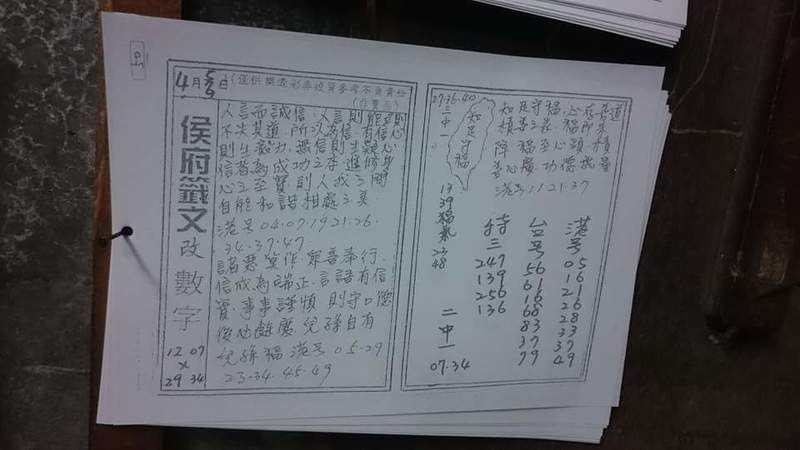 4月 5/9日
侯府籤文
改數字
12 07
×
29 34
(僅供樂透彩券投資參考不負責任
(自費三)
人言而誠信.人言則能
不失其道 所以為信 有信心
則生毅力.無信則生疑心
信者為成功之本 進修身
心之至寶 則人我之間
自能和諧相處之氣
港号04.07.19 21.26.
34.37.47
諸惡莫作.眾善奉行.
信成為端正.言語有信
實.事事謹慎 則守口德
後她餘慶 兒孫自有
兒孫福 港号05.29
23.34.45.49
27.36.40
三中一
知足守福
知足守福.心存善道
積善之家 福
降福至心頭 積
善心慶 功德
港号11.21.37
13
39
福氣
23
48
特三
247
139
256
136
台号
56
61
16
68
83
37
79
港号
05
16
21
26
28
33
37
49
二中一
07.34